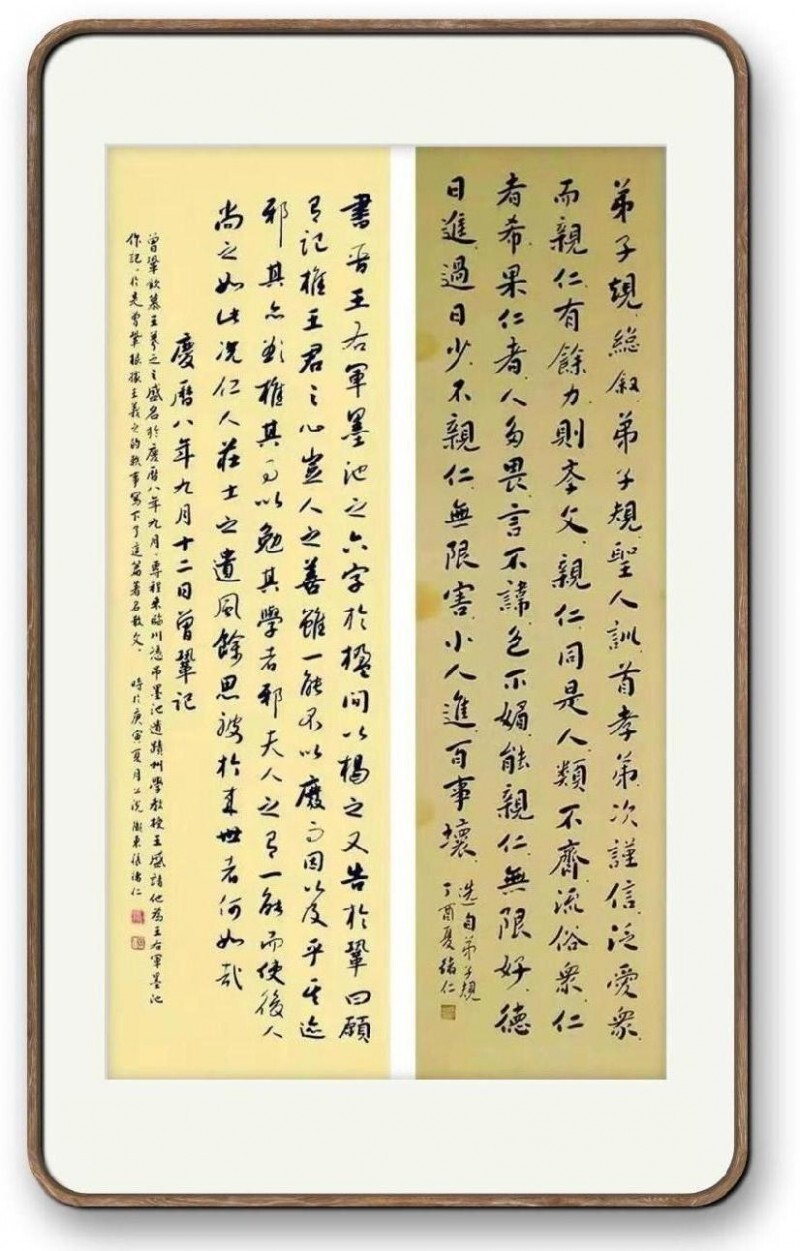 弟子規總叙弟子規聖人訓首孝弟次謹信泛愛衆
而親仁有餘力則斈文親仁同是人類不齊流俗衆仁
者希果仁者人多畏言不諱色不媚能親仁無限好德
日進過日少不親仁無限害小人進百事壞
選自弟子規
丁酉夏緒仁
書晉王右軍墨池之六字於楹間以揭之又告於鞏曰願
有記推王君之心豈人之善雖一能不以廢而因以及乎其迹
邪其亦欲推其事以勉其學者邪夫人之有一能而使後人
尚之如此况仁人莊士之遺風餘思被於來世者何如哉
慶曆八年九月十二日曾鞏記
曾鞏欽慕王羲之之盛名於慶曆八年九月，專程來臨川憑吊墨池遺蹟州學教授王盛請他為王右軍墨池
作記，於是曾鞏根據王羲之的軼事寫下了這篇著名散文， 時於庚寅夏月 衡東張緒仁